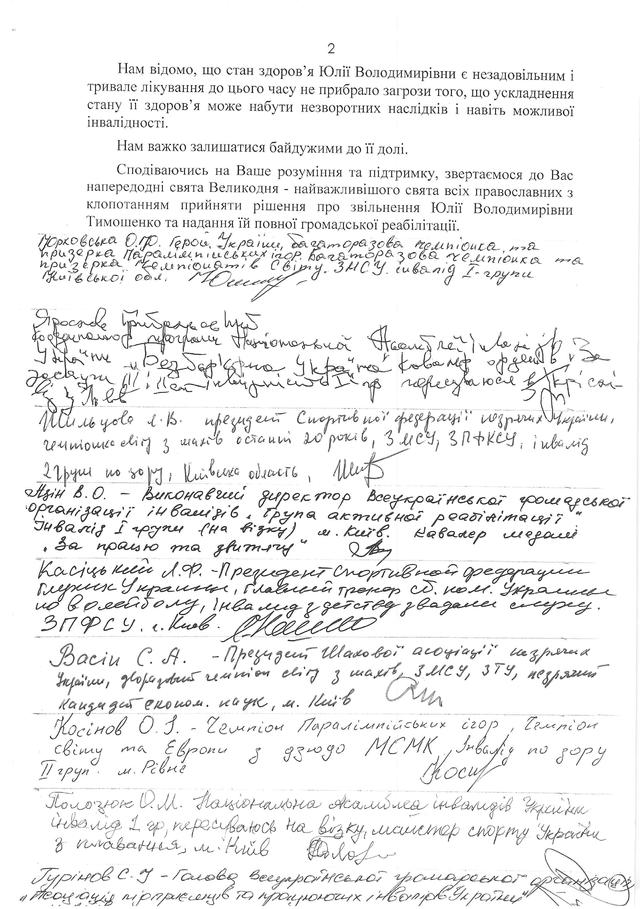 2
Нам відомо, що стан здоров'я Юлії Володимирівни є незадовільним і
тривале лікування до цього часу не прибрало загрози того, що ускладнення
стану її здоров'я може набути незворотних наслідків і навіть можливої
інвалідності.
Нам важко залишатися байдужими до її долі.
Сподіваючись на Ваше розуміння та підтримку, звертаємося до Вас
напередодні свята Великодня - найважливішого свята всіх православних з
клопотанням прийняти рішення про звільнення Юлії Володимирівни
Тимошенко та надання їй повної громадської реабілітації.
О.Ю. Герой України, багаторазова чемпіонка, та
призерка Паралімпійських ігор, багаторазова чемпіонка та
призерка чемпіонатів Світу. ЗМСУ. інвалід I-групи
Київської обл.
програми Національної Асамблеї
України "Безбар'єрна Україна" Кавалер орденів "За
Л.В. президент Спортивної федерації незрячих України,
чемпіонка світу з шахів останні 20 років, ЗМСУ, ЗПФКСУ, інвалід
2 групи по зору, Київська область,
В.О. - Виконавчий директор Всеукраїнської громадської
організації інвалідів "Група активної реабілітації"
Інвалід I групи (на візку) м. Київ. Кавалер медалі
"За працю та звитягу"
Касіцький Л.Ф. - Президент Спортивной федерации
глухих Украины, главный тренер сб. ком. Украины
по волейболу, інвалід з дитства з вадами слуху.
ЗПФСУ. г. Киев
Васін С.А. - Президент Шахової асоціації незрячих
України, дворазовий чемпіон світу з шахів, ЗМСУ, ЗТУ, незрячий
кандидат економ. наук, м. Київ
Косінов О.І. - Чемпіон Паралімпійських ігор, Чемпіон
світу та Европи з дзюдо МСМК, Інвалід по зору
II груп. м. Рівне
Полозюк О.М. Національна Асамблея інвалідів України
інвалід 1 гр, пересуваюсь на візку, майстер спорту України
з плавання, м. Київ
Гурінов С.І - Голова Всеукраїнської громадської організації
"Асоціація підприємців та працюючих інвалідів України"